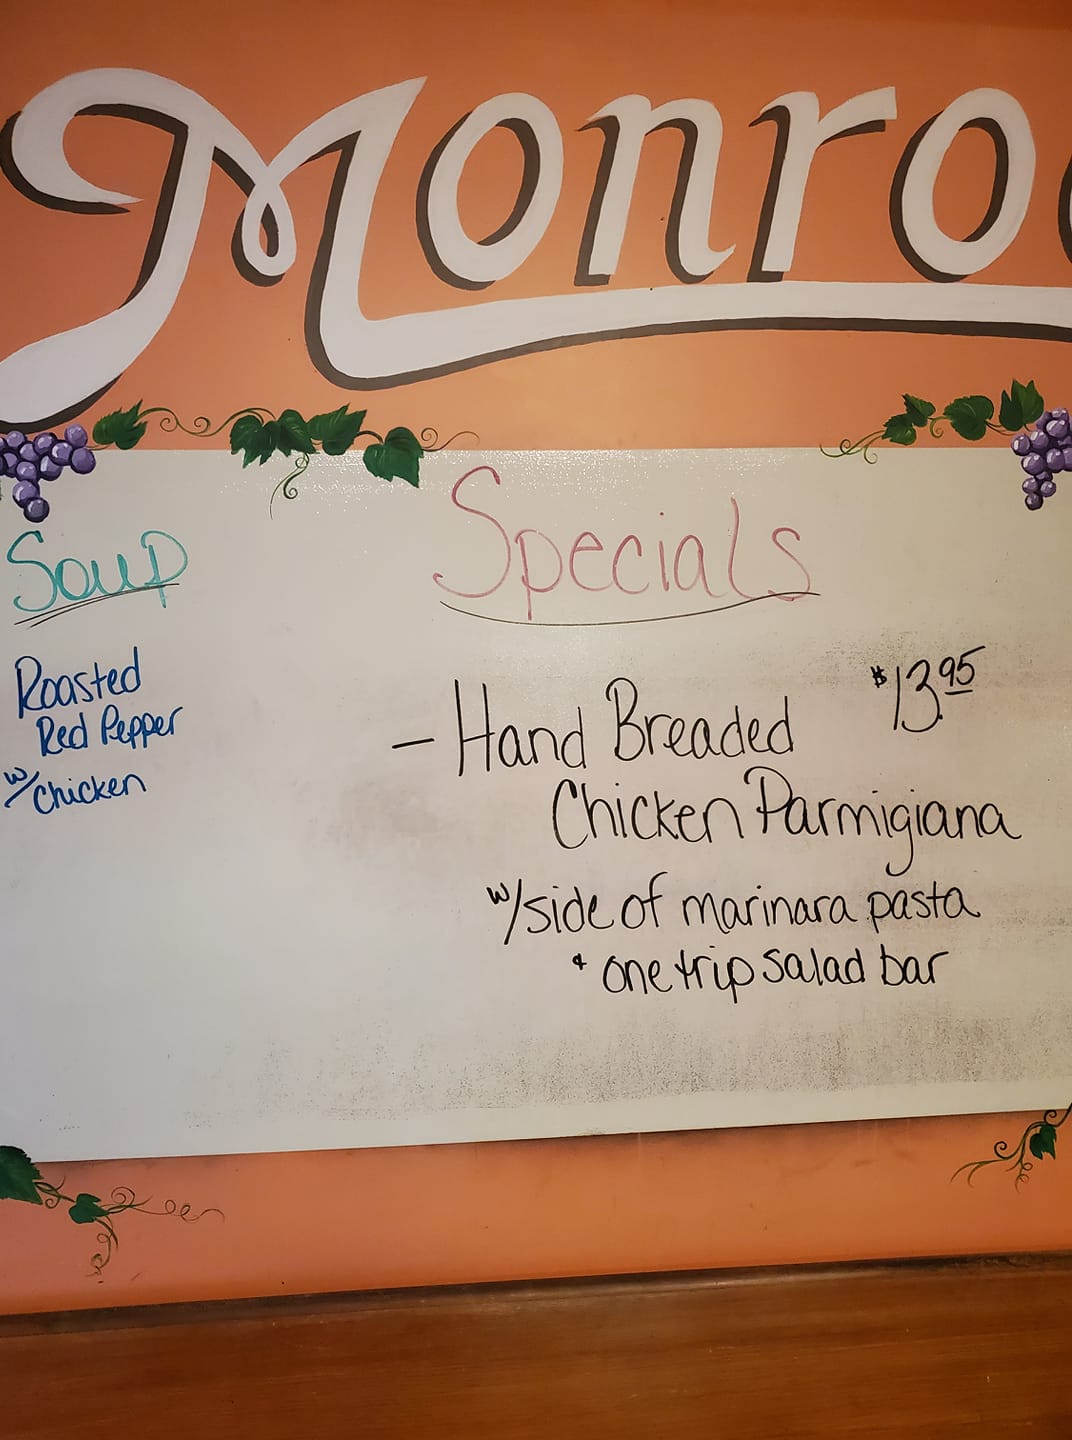 Monro
Soup
Roasted
Red Pepper
w/chicken
Specials
- Hand Breaded $13.95
Chicken Parmigiana
w/side of marinara pasta
& one trip salad bar